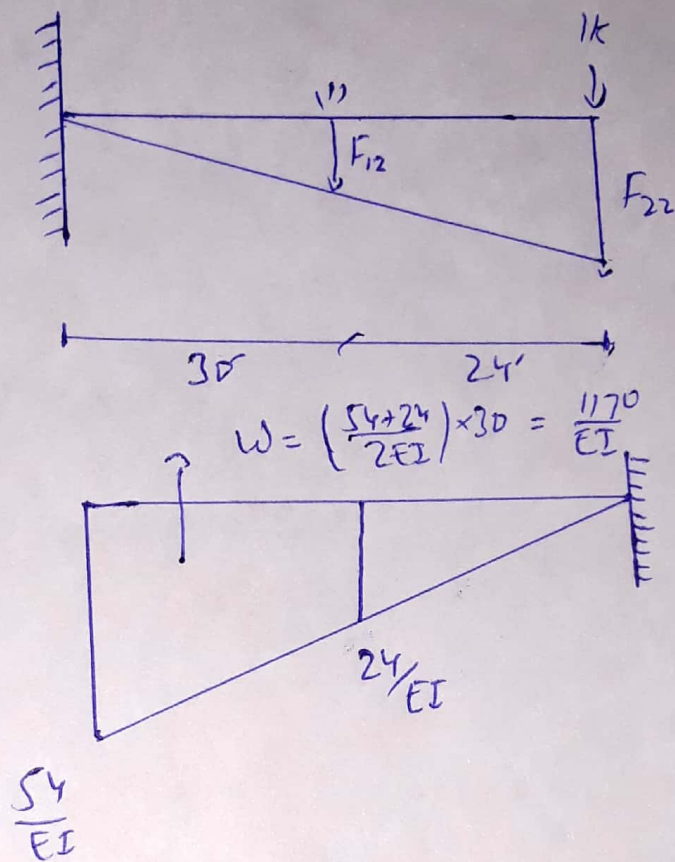 1k
(1)
F₁₂
F₂₂
30'
24'
W = (54+24/2EI) ×30 = 1170/EI
24/EI
54/EI